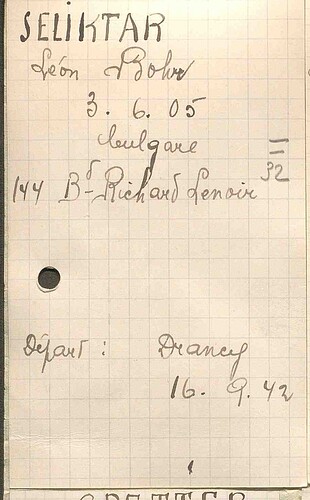 SELIKTAR
Léon Bohr
3. 6. 05
bulgare
=
32
144 Bd Richard Lenoir
Départ : Drancy
16. 9. 42